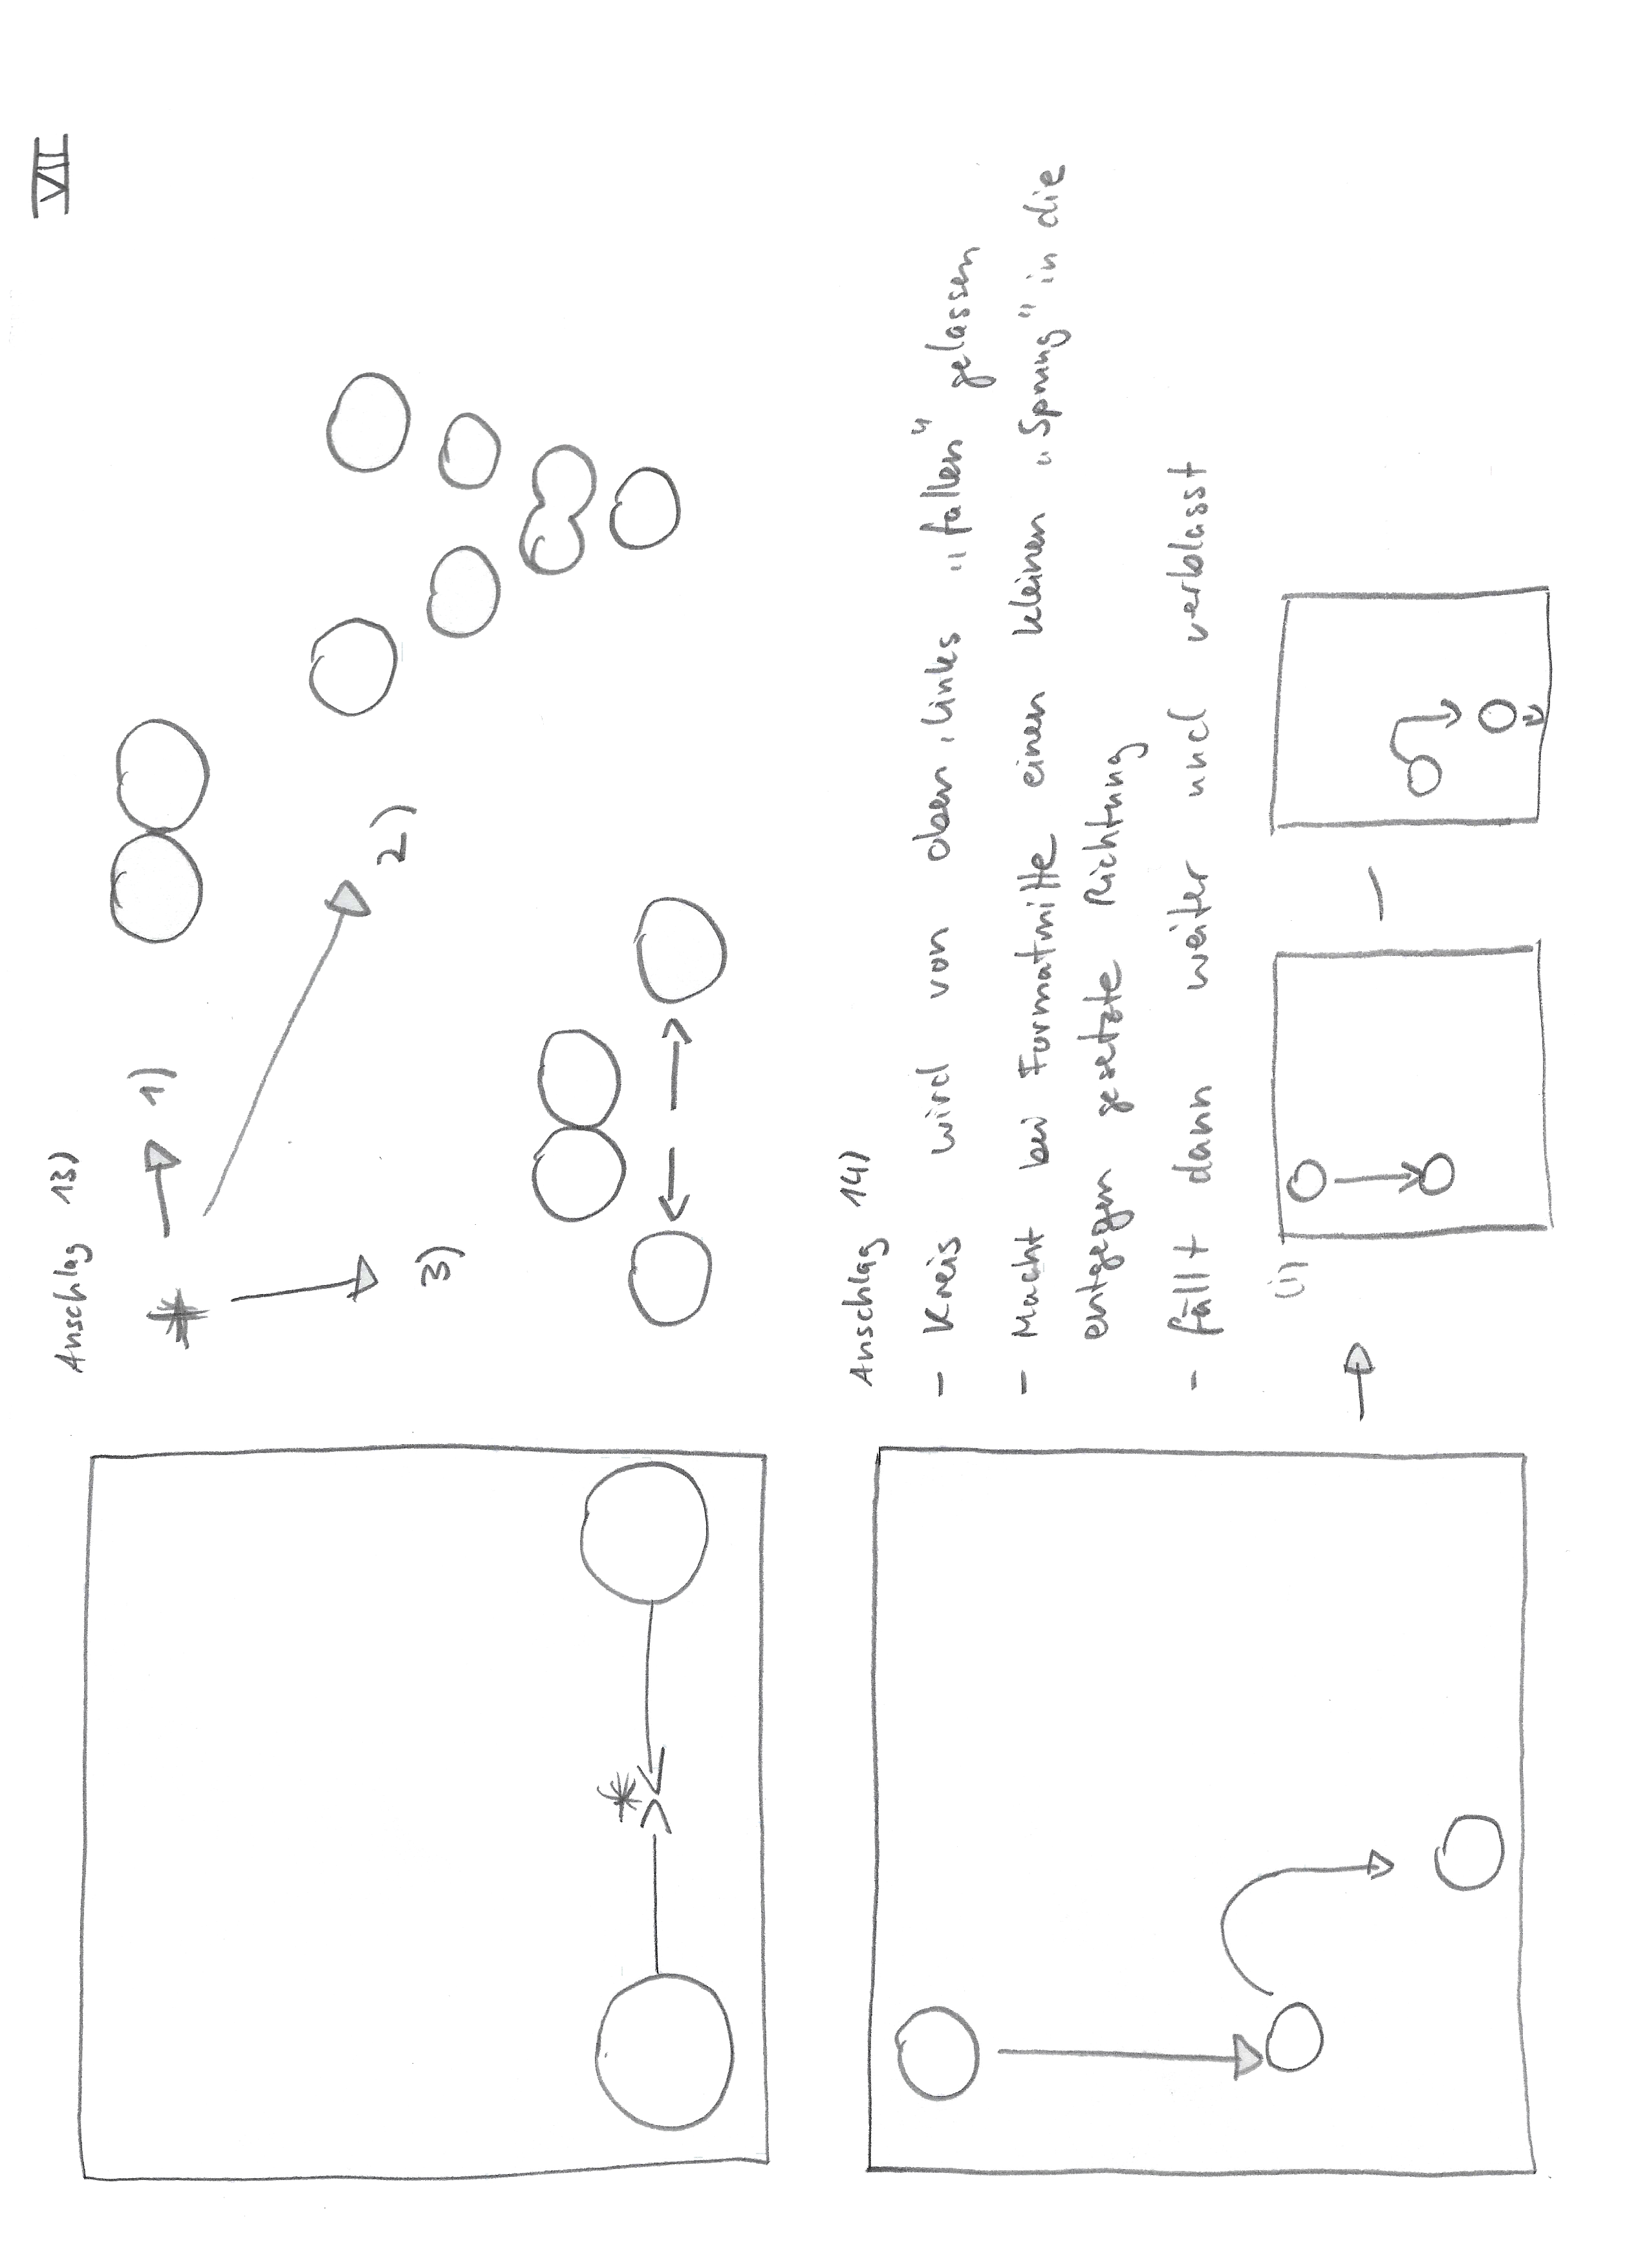 VII
Anschlag 13)
*
1)
2)
3)
*
Anschlag 14)
- Kreis wird von oben, links "fallen" gelassen
- Macht bei Formatmitte einen kleinen "Sprung" in die
entgegen gesetzte Richtung
- fällt dann weiter und verblasst